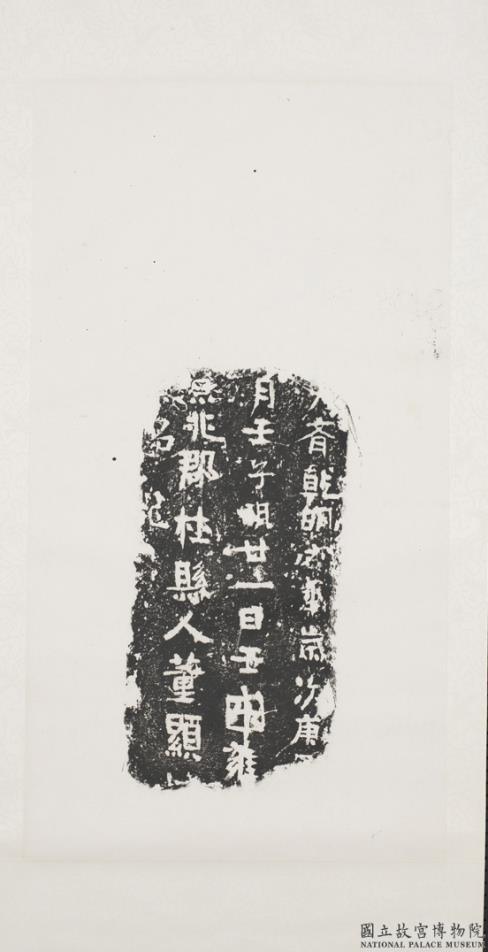 齊乾明元年歲次庚
月壬子朔廿一日壬申雍
京兆郡杜縣人董顯
國立故宮博物院
NATIONAL PALACE MUSEUM